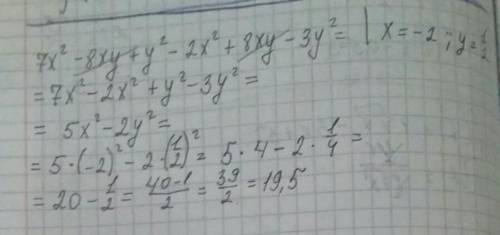 7x² - 8xy + y² - 2x² + 8xy - 3y² = | x = -2 ; y = 1/2
= 7x² - 2x² + y² - 3y² =
= 5x² - 2y² =
= 5·(-2)² - 2·(1/2)² = 5·4 - 2·1/4 =
= 20 - 1/2 = 40-1/2 = 39/2 = 19,5